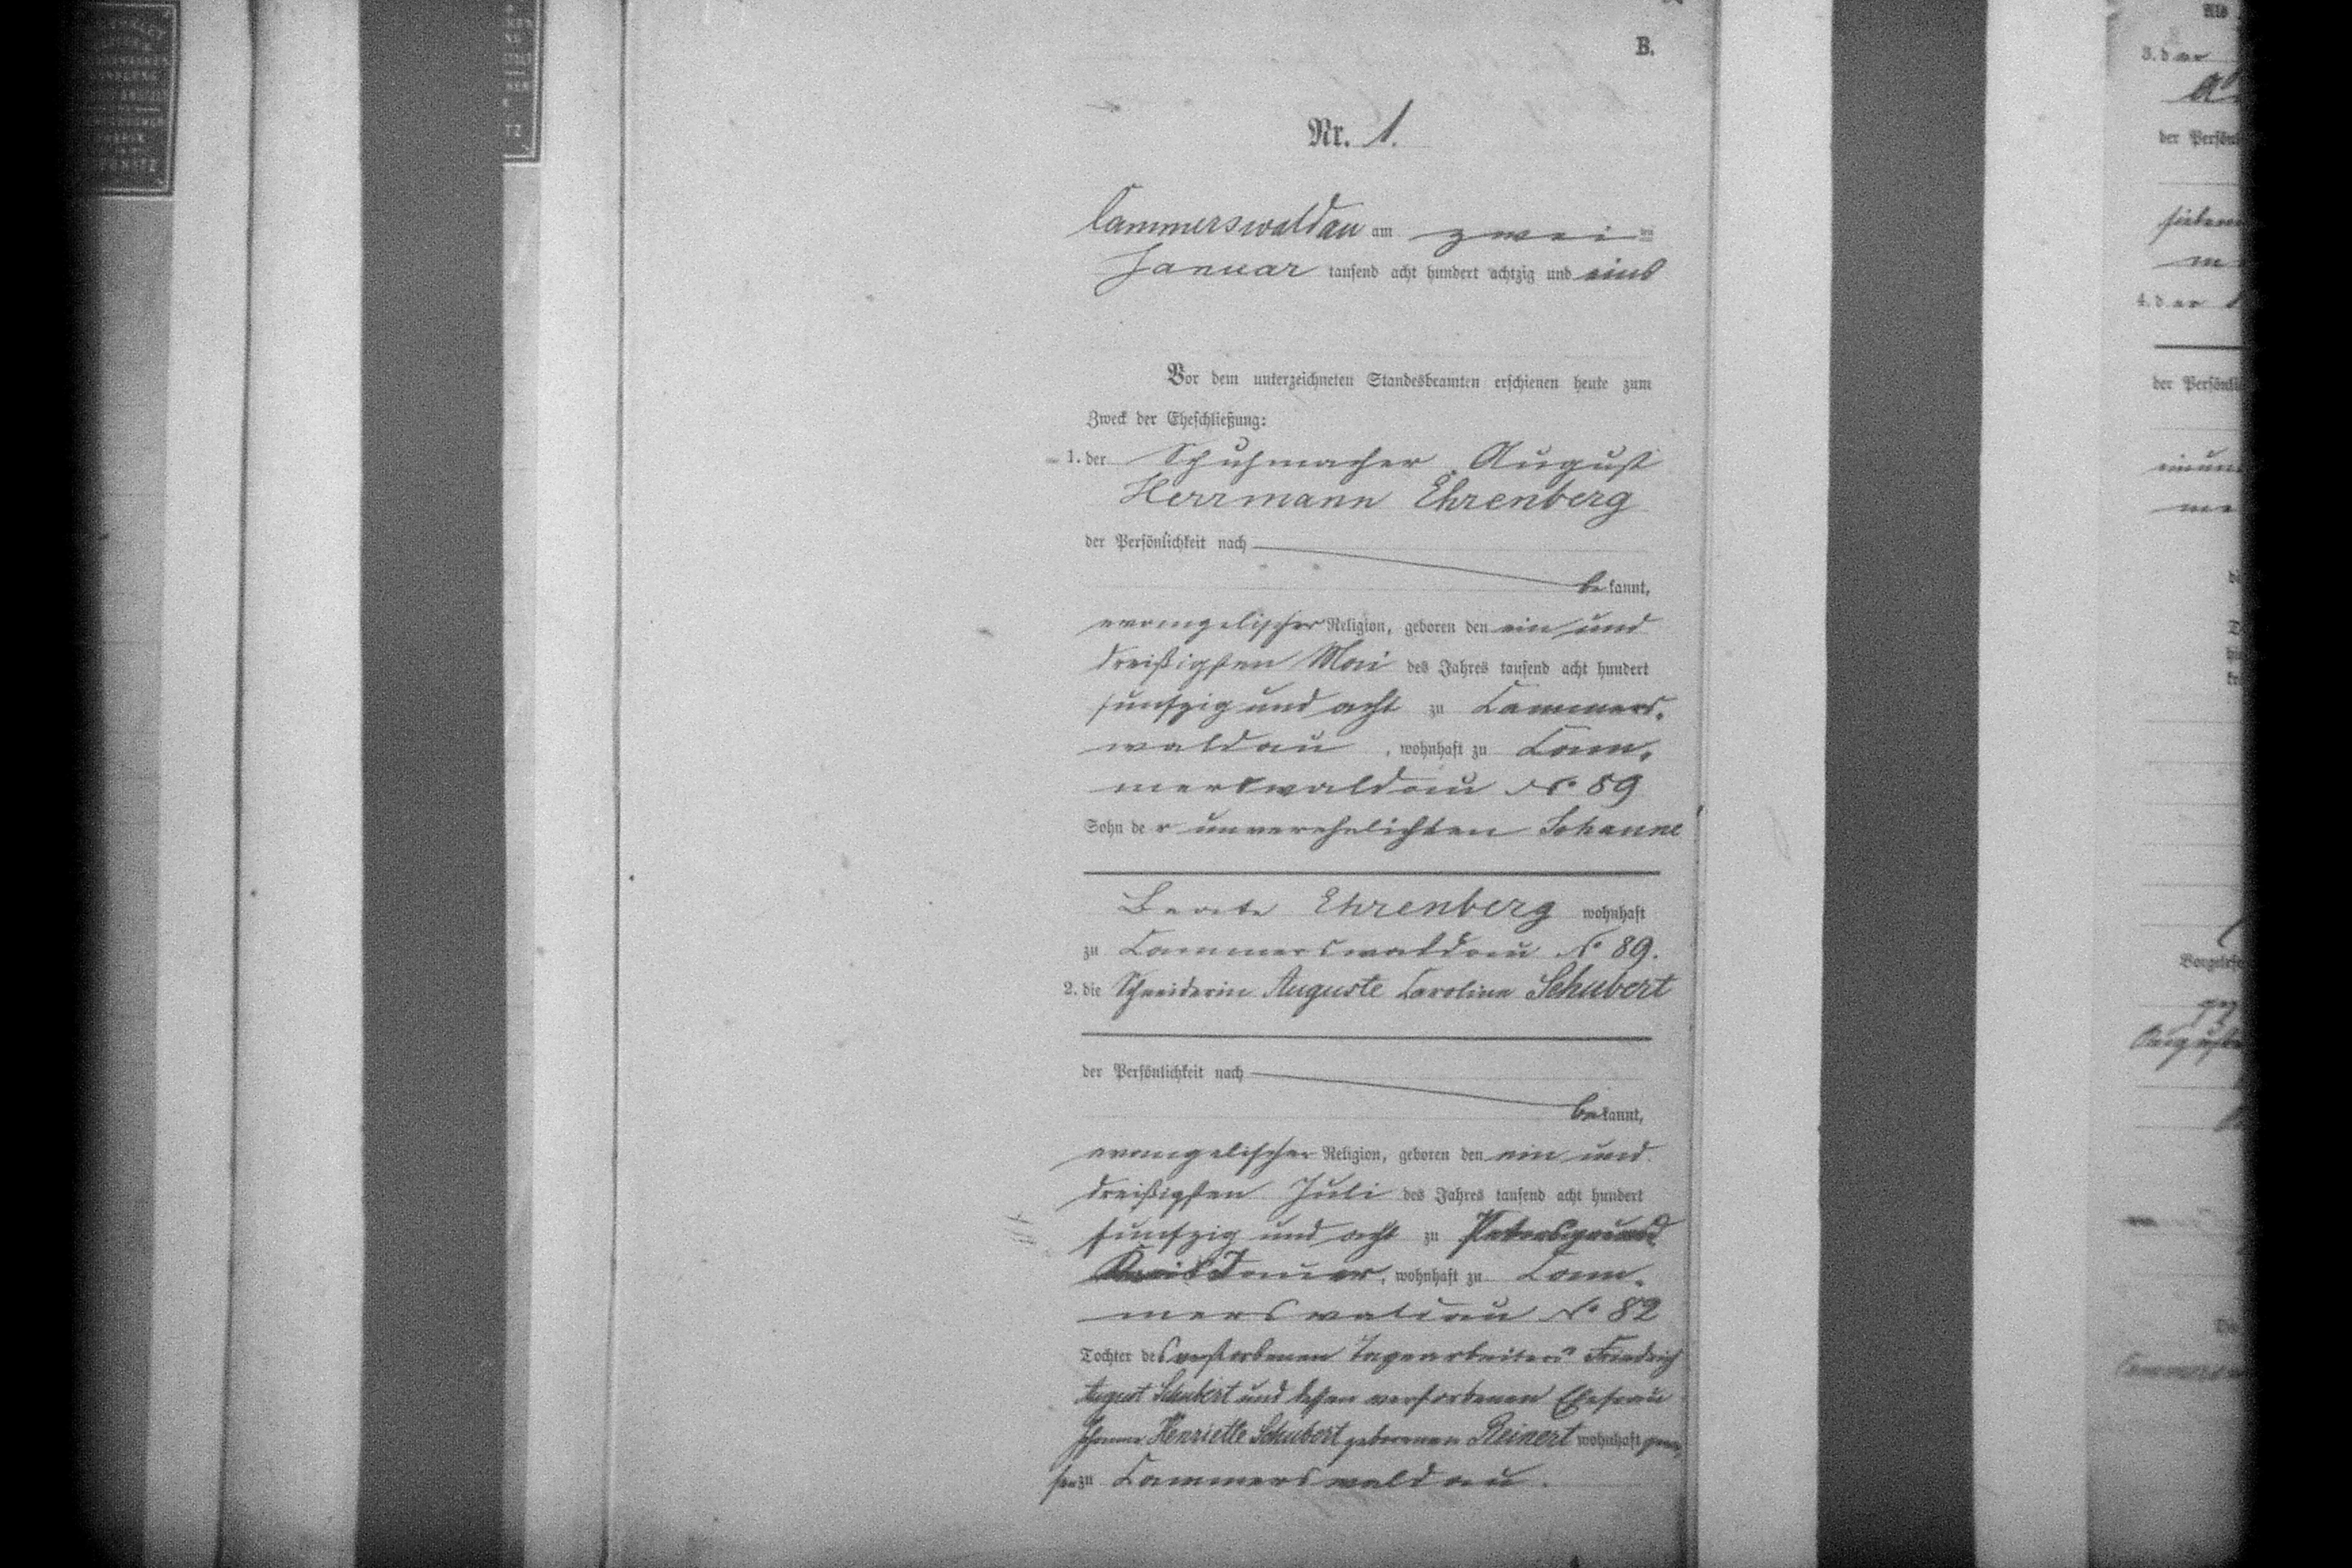 B.
Nr. 1.
Cammerswaldau am zwei ten
Januar tausend acht hundert achtzig und eins
Vor dem unterzeichneten Standesbeamten erschienen heute zum
Zweck der Eheschließung:
1. der Schuhmacher August
Herrmann Ehrenberg
der Persönlichkeit nach
be kannt,
evangelischer Religion, geboren den ein und
dreißigsten Mai des Jahres tausend acht hundert
funfzig und acht zu Cammers-
waldau, wohnhaft zu Cam-
merswaldau No 89
Sohn de r unverehelichten Johanne
Beate Ehrenberg wohnhaft
zu Cammerswaldau No 89.
2. die Schneiderin Auguste Caroline Schubert
der Persönlichkeit nach
be kannt,
evangelischer Religion, geboren den ein und
dreißigsten Juli des Jahres tausend acht hundert
funfzig und acht zu Petersgrund
Kreis Jauer, wohnhaft zu Cam-
merswaldau No 82
Tochter des verstorbenen Tagearbeiters Friedrich
August Schubert und dessen verstorbenen Ehefrau
Johanne Henriette Schubert geborenen Reinert wohnhaft gewe-
sen zu Cammerswaldau.
Als
3. der
der Persön
4. der
der Persönli